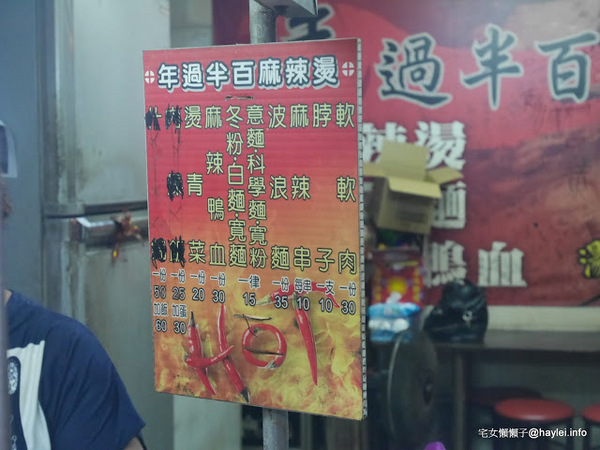 年過半百麻辣燙
軟軟肉
一份
30
脖子
一支
10
麻辣串
每串
10
波浪麵
一份
35
意麵·科學麵·寬粉
冬粉·白麵·寬麵
一律
15
麻辣鴨血
一份
30
燙青菜
一份
20
一份
25
加蛋
30
一份
50
加飯
60
HOT
過半百
辣燙
麵
鴨血
宅女懶懶子@haylei.info